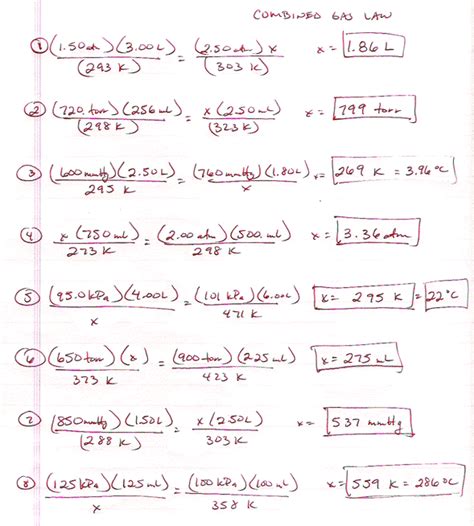 COMBINED GAS LAW
① (1.50 atm)(3.00 L) / (293 K) = (2.50 atm) x / (303 K) x = 1.86 L
② (720. torr)(256 mL) / (298 K) = x (250 mL) / (323 K) x = 799 torr
③ (600 mmHg)(2.50 L) / 295 K = (760 mmHg)(1.80 L) / x x = 269 K = 3.96 °C
④ x (750 mL) / 273 K = (2.00 atm)(500. mL) / 298 K x = 3.36 atm
⑤ (95.0 kPa)(4.00 L) / x = (101 kPa)(6.00 L) / 471 K x = 295 K = 22 °C
⑥ (650 torr)(x) / 373 K = (900 torr)(225 mL) / 423 K x = 275 mL
⑦ (850 mmHg)(1.50 L) / (288 K) = x (2.50 L) / 303 K x = 537 mmHg
⑧ (125 kPa)(125 mL) / x = (100 kPa)(100 mL) / 358 K x = 559 K = 286 °C